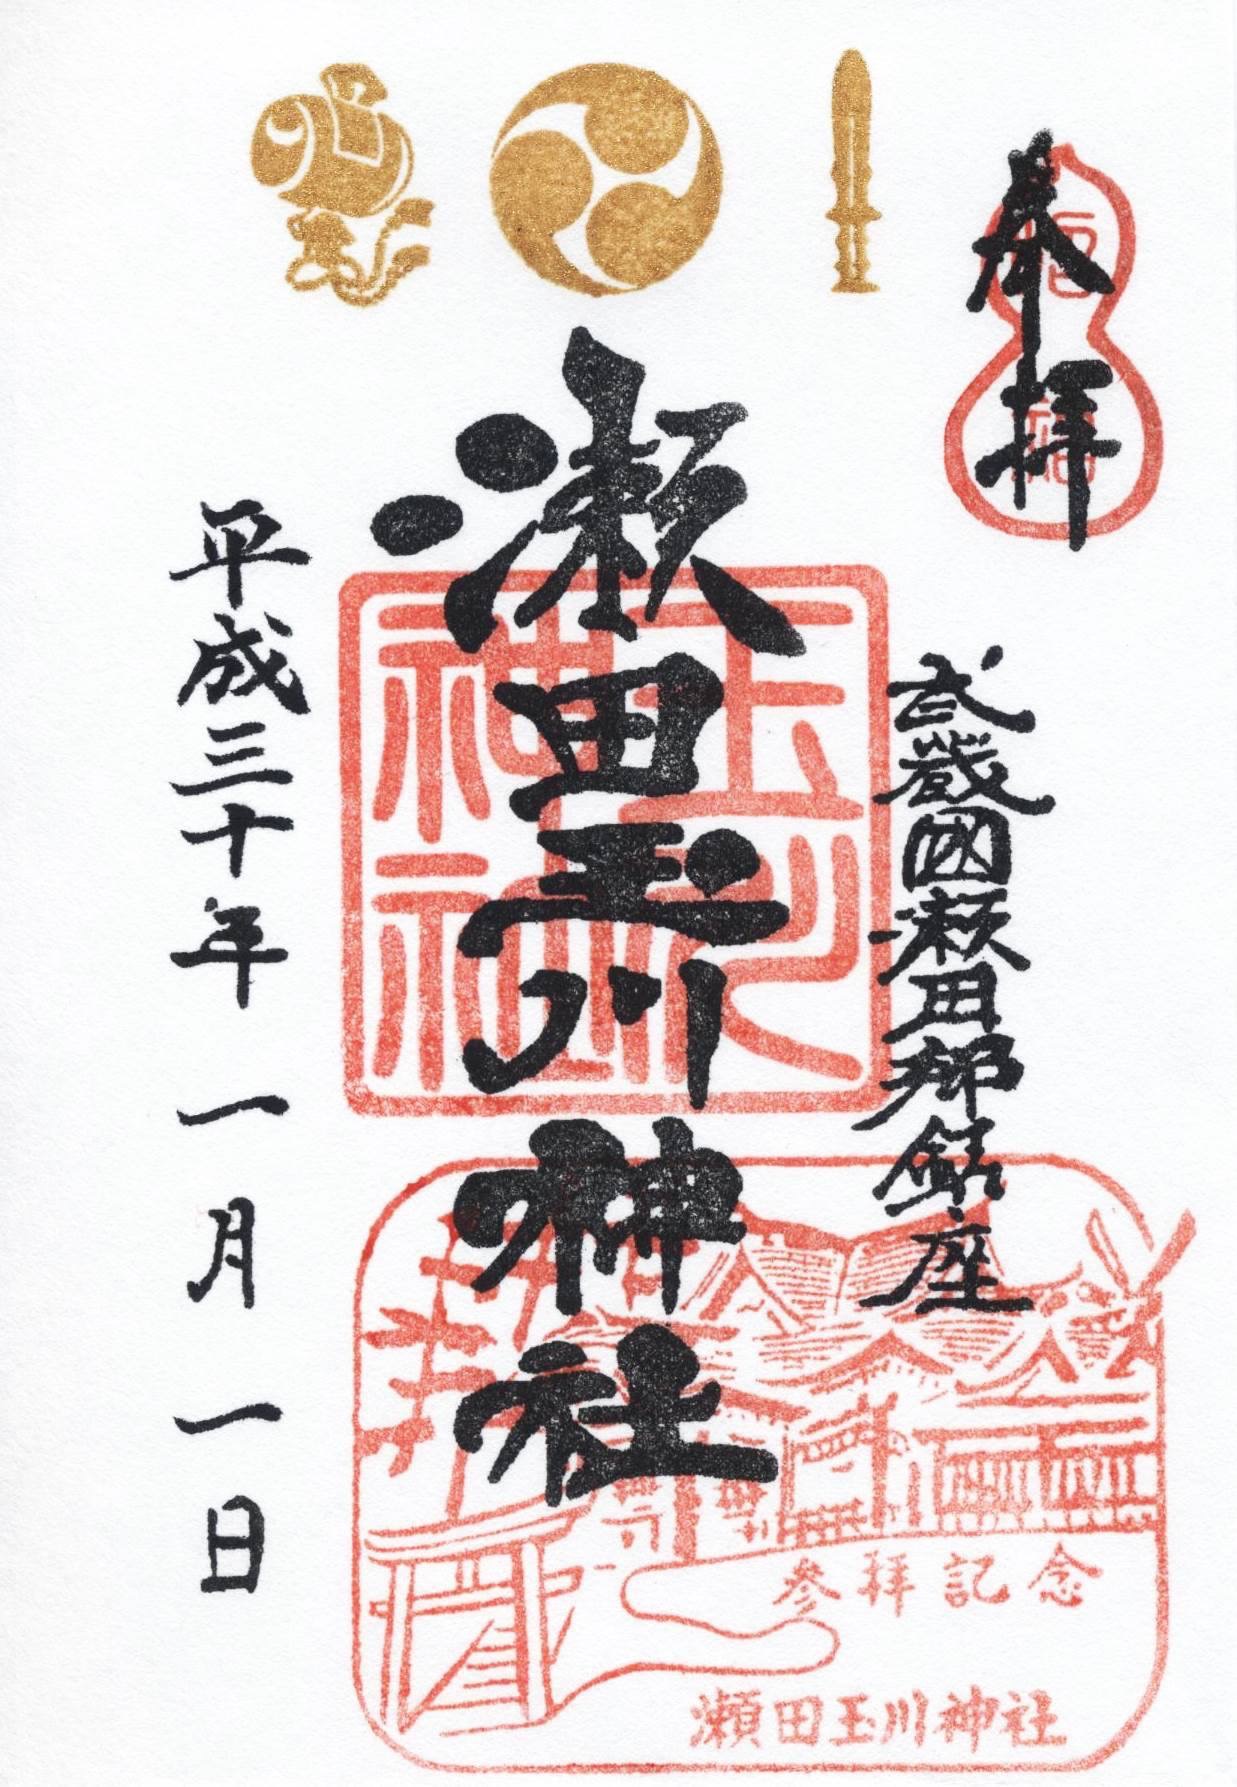 奉拝
武蔵國瀬田郷鎮座
瀬田玉川神社
平成三十年一月一日
玉川
神社
参拝記念
瀬田玉川神社